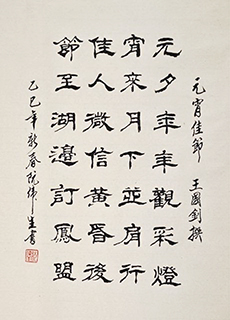 元宵佳節 王國釗撰
元夕年年觀彩燈
宵來月下並肩行
佳人微信黃昏後
節至湖邊訂鳳盟
乙巳年新春阮偉生書